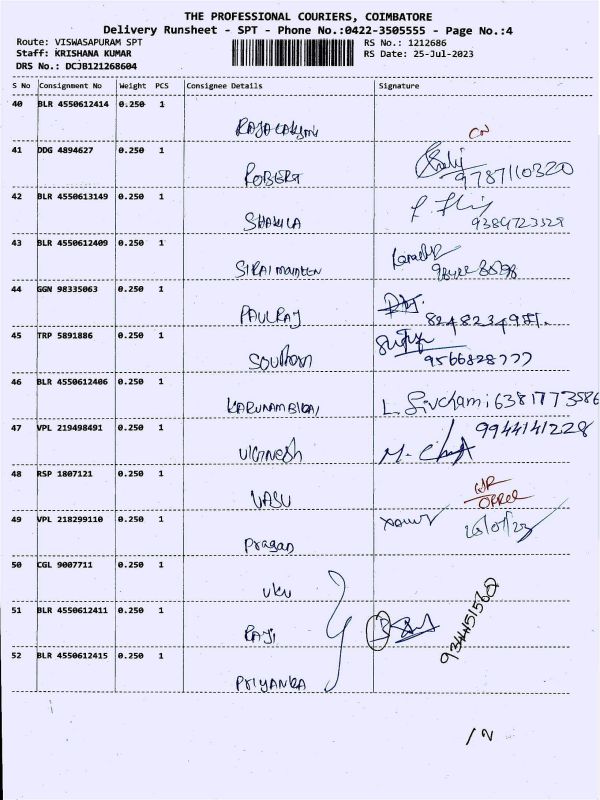 THE PROFESSIONAL COURIERS, COIMBATORE
Delivery Runsheet - SPT - Phone No.:0422-3505555 - Page No.:4
Route: VISWASAPURAM SPT
RS No.: 1212686
Staff: KRISHANA KUMAR
RS Date: 25-Jul-2023
DRS No.: DCJB121268604
S No Consignment No Weight PCS Consignee Details Signature
40 BLR 4550612414 0.250 1
RAJALAKSHMI CN
41 DDG 4894627 0.250 1
ROBERT 9787110320
42 BLR 4550613149 0.250 1
SHAKILA 9384723529
43 BLR 4550612409 0.250 1
SIRAJ
44 GGN 98335063 0.250 1
PAULRAJ
45 TRP 5891886 0.250 1
SOUTHERN 9566828777
46 BLR 4550612406 0.250 1
KARUNAMBIGAI L. Sivchami 6381773586
47 VPL 219498491 0.250 1
VIGNESH 9944141228
48 RSP 1807121 0.250 1
VASU
49 VPL 218299110 0.250 1
Pragan 26/07/23
50 CGL 9007711 0.250 1
UKU
51 BLR 4550612411 0.250 1
RAJI 9344151560
52 BLR 4550612415 0.250 1
PRIYANKA
12